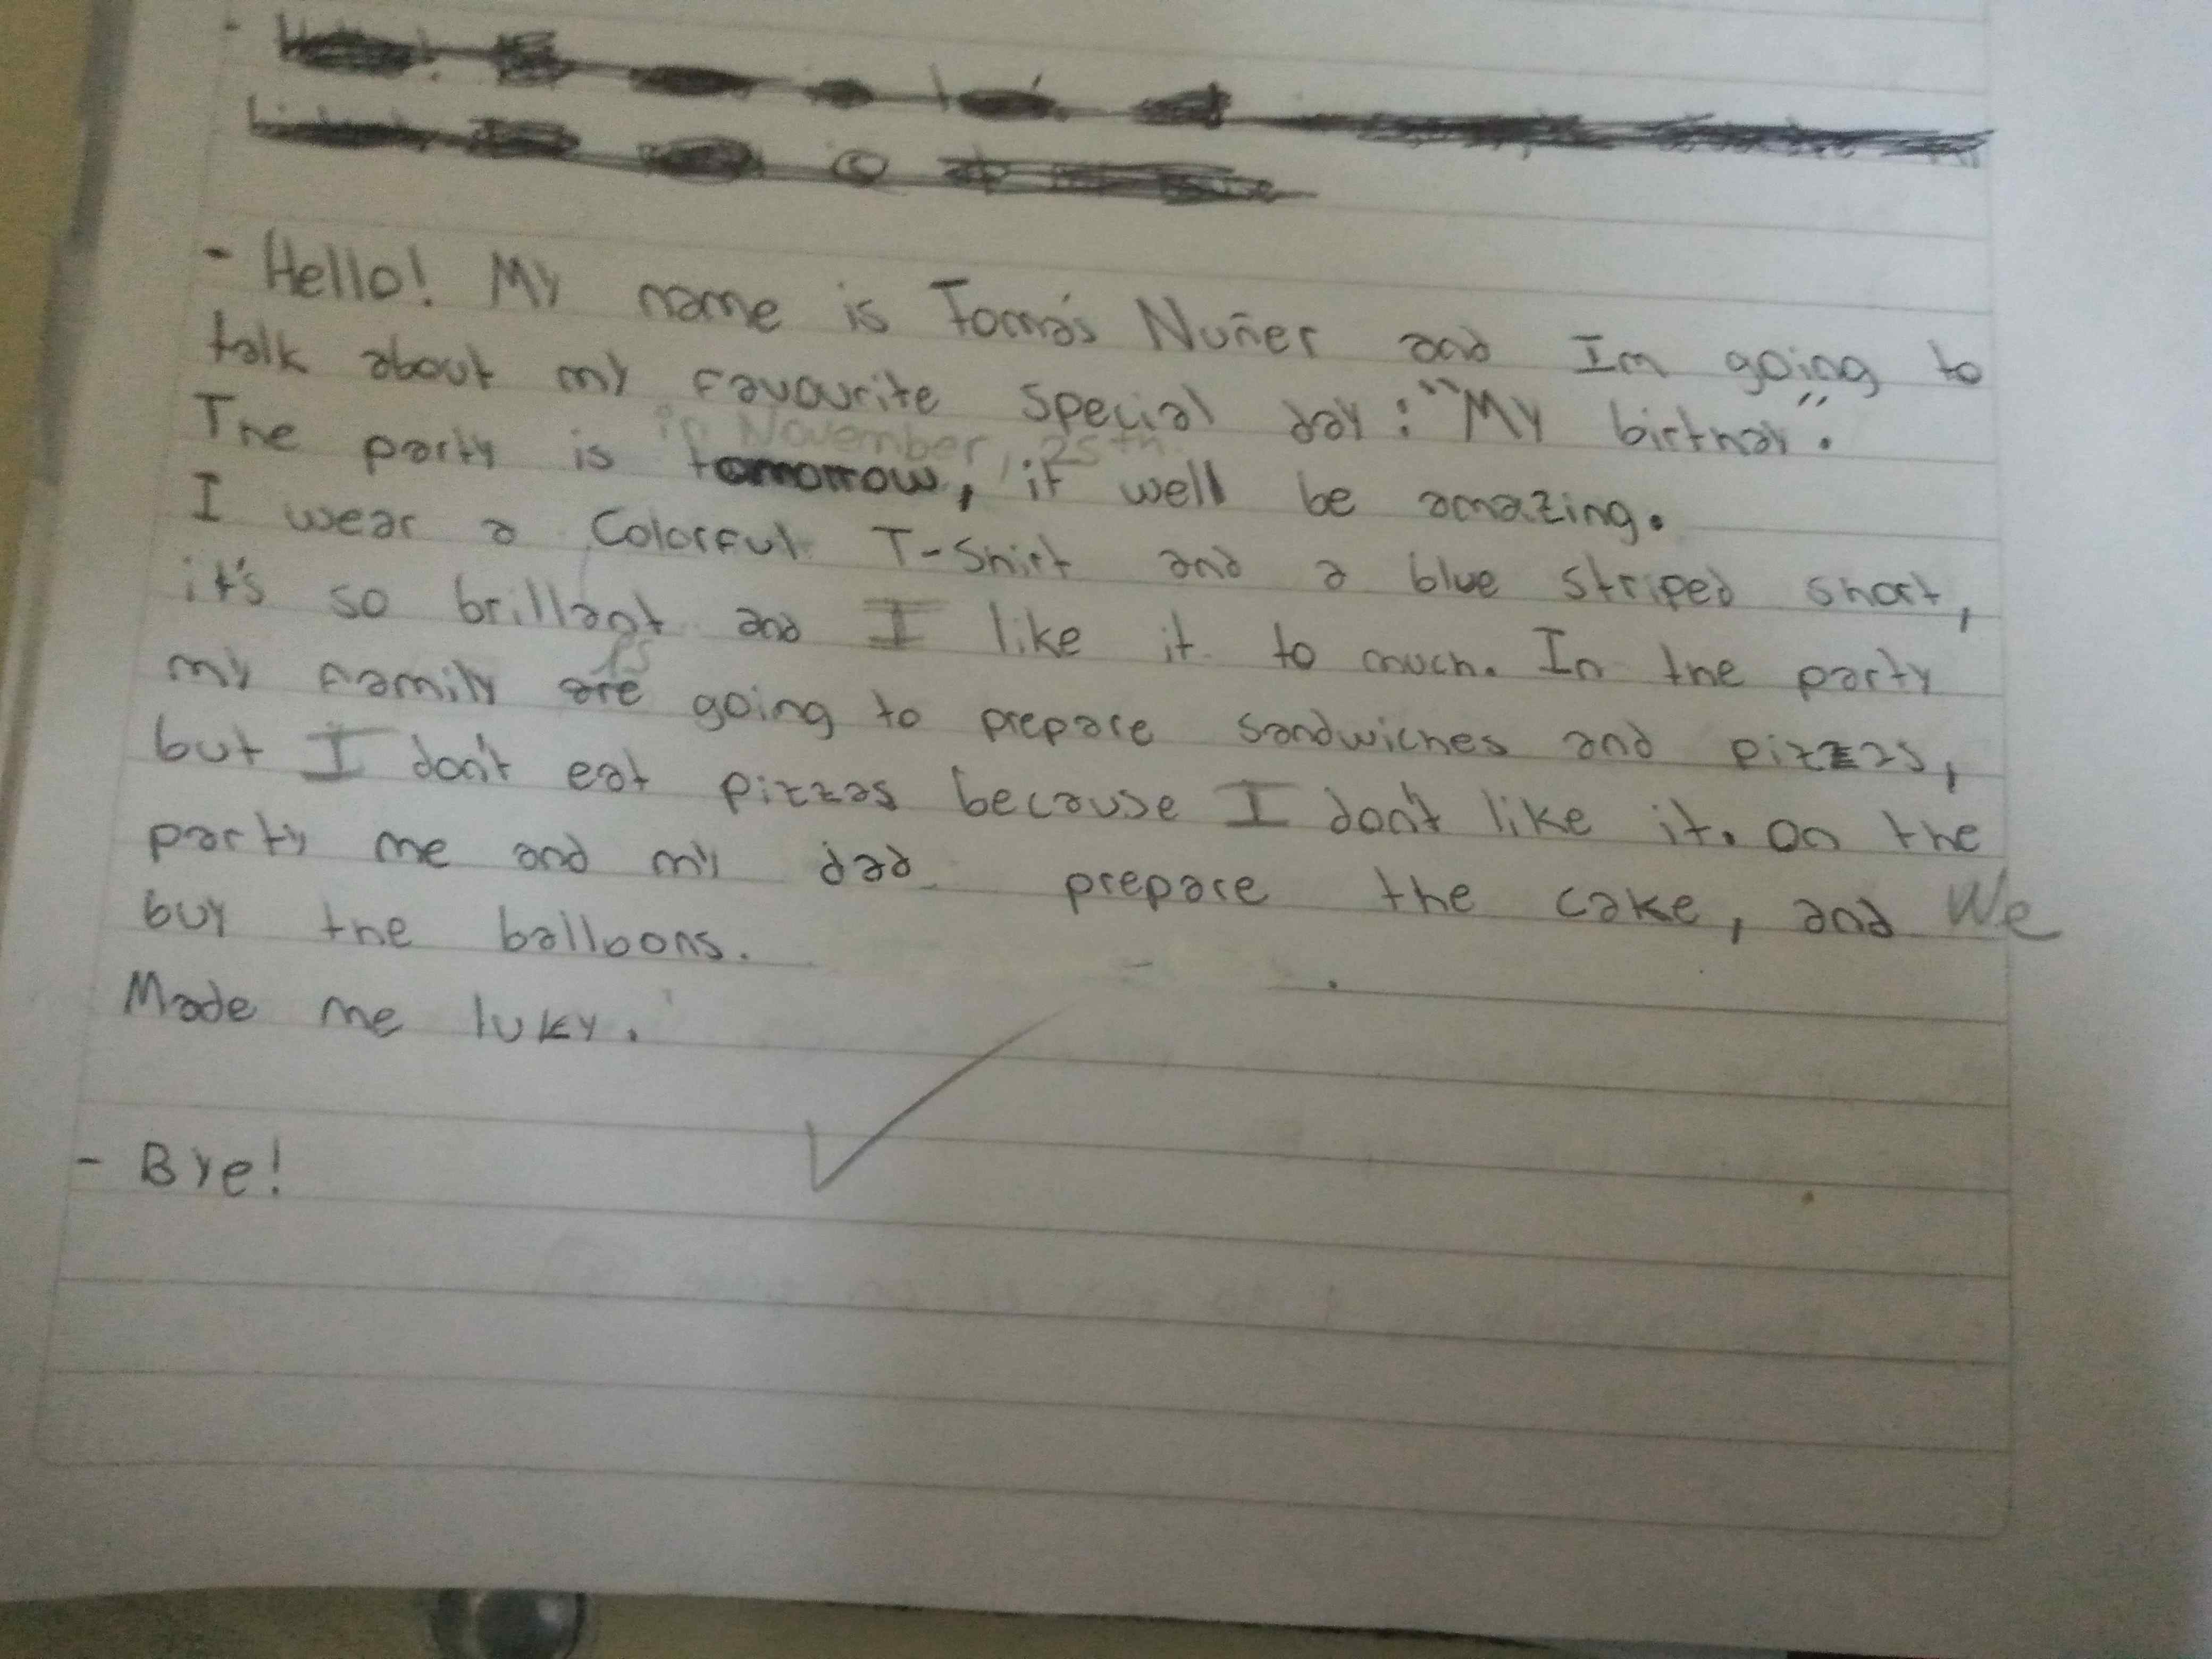 - Hello! My name is Tomás Nuñer and Im going to
talk about my favourite special day: "My birthay".
in November, 25th
The party is tomorrow, it well be amazing.
I wear a Colorful T-Shirt and a blue striped short,
it's so brillant and I like it to much. In the party
is
my family are going to prepare sandwiches and pizzas,
but I don't eat pizzas because I don't like it. On the
party me and my dad prepare the cake, and We
buy the balloons.
Made me luky.
- Bye!